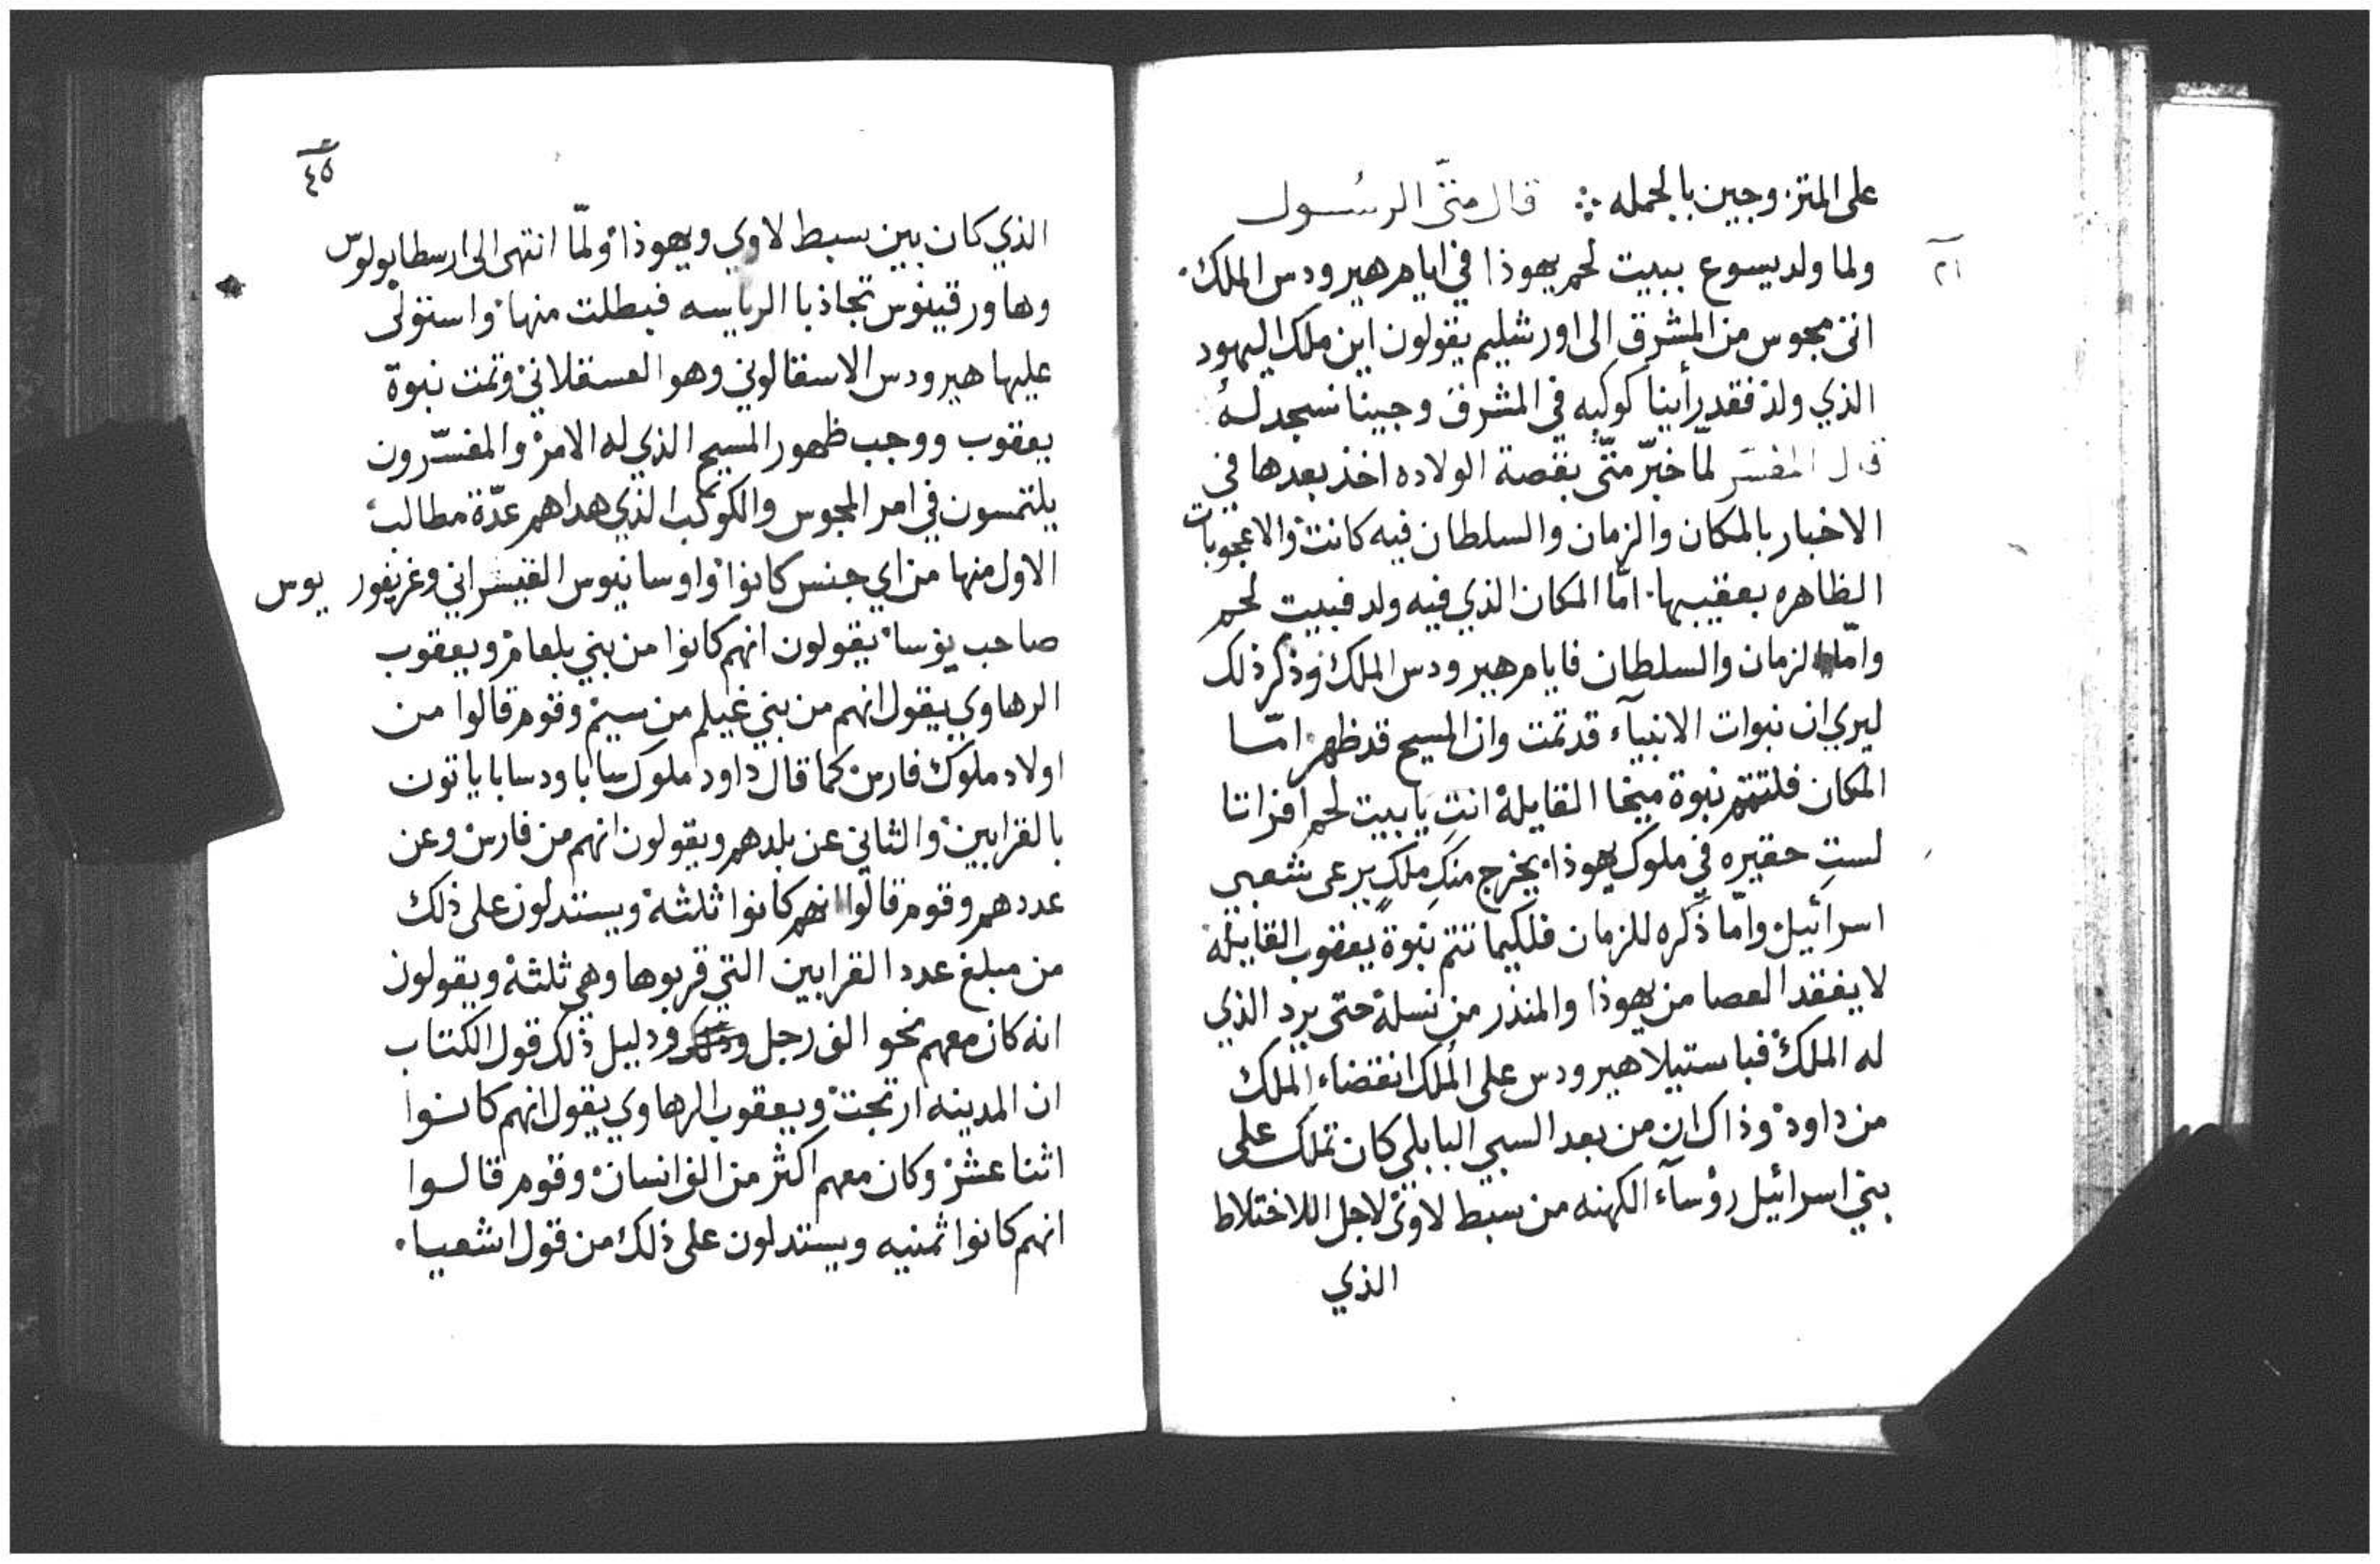 على المتزوجين بالجمله ؞ قال متّى الرسُول
ولما ولد يسوع ببيت لحم يهوذا في ايام هيرودس الملك.
اتى مجوس من المشرق الى اورشليم يقولون اين ملك اليهود
الذي ولد فقد رأينا كوكبه في المشرق وجينا نسجد لهُ
قال المفسّر لمّا خبّر متّى بقصة الولاده اخذ بعدها في
الاخبار بالمكان والزمان والسلطان فيه كانت والاعجوبات
الظاهره بعقيبها. امّا المكان الذي فيه ولد فبيت لحم
وامّا الزمان والسلطان فايام هيرودس الملك وذكر ذلك
ليري ان نبوات الانبيآء قد تمت وان المسيح قد ظهر. امّا
المكان فلتتم نبوة ميخا القايلة انتِ يا بيت لحم افراتا
لستِ حقيره في ملوك يهوذا يخرج منكِ ملكٍ يرعى شعبي
اسرائيل وامّا ذكره للزمان فلكيما تتم نبوة يعقوب القايلة
لا يفقد العصا من يهوذا والمنذر من نسله حتى يرد الذي
له الملك فباستيلا هيرودس على الملك انقضاء الملك
من داود وذاك ان من بعد السبي البابلي كان تملك على
بني اسرائيل رؤسآء الكهنه من سبط لاوى لاجل اللاختلاط
الذي
٢١
٤٥
الذي كان بين سبط لاوي ويهوذا ولمّا انتهى الى ارسطابولوس
وهاورقينوس تجاذبا الرياسه فبطلت منها واستولى
عليها هيرودس الاسقالوني وهو العسقلاني وتمت نبوة
يعقوب ووجب ظهور المسيح الذي له الامر والمفسّرون
يلتمسون في امر المجوس والكوكب الذي هداهم عدّة مطالب
الاول منها من اي جنس كانوا واوسانيوس القيسراني وغريغوريوس
صاحب نؤسا يقولون انهم كانوا من بني بلعام ويعقوب
الرهاوي يقول انهم من بني عيلم من سيم وقوم قالوا من
اولاد ملوك فارس كما قال داود ملوك سابا ودسابا ياتون
بالقرابين والثاني عن بلدهم ويقولون انهم من فارس وعن
عددهم وقوم قالوا انهم كانوا ثلثة ويستدلون على ذلك
من مبلغ عدد القرابين التي قربوها وهي ثلثة ويقولون
انه كان معهم نحو الف رجل ودليل ذلك قول الكتاب
ان المدينه ارتجت ويعقوب الرهاوي يقول انهم كانوا
اثنا عشر وكان معهم اكثر من الف انسان وقوم قالوا
انهم كانوا ثمنيه ويستدلون على ذلك من قول اشعيا.